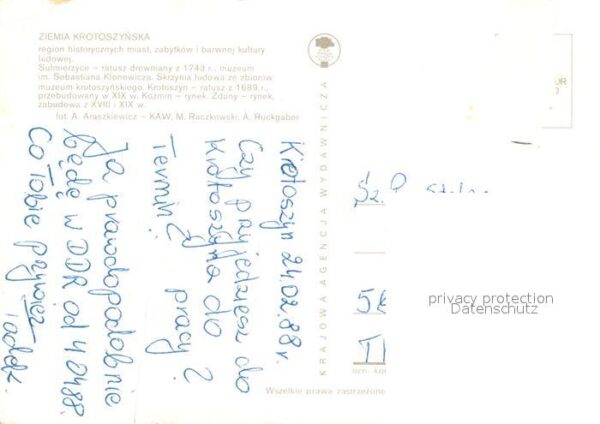 ZIEMIA KROTOSZYŃSKA
region historycznych miast, zabytków i barwnej kultury
ludowej.
Sulmierzyce – ratusz drewniany z 1743 r., muzeum
im. Sebastiana Klonowicza. Skrzynia ludowa ze zbiorów
muzeum krotoszyńskiego. Krotoszyn – ratusz z 1689 r.,
przebudowany w XIX w. Koźmin – rynek. Zduny – rynek,
zabudowa z XVIII i XIX w.
fot. A. Araszkiewicz – KAW, M. Raczkowski, A. Ruckgaber
Krotoszyn 24.02.88 r.
Czy przyjedziesz do
Krotoszyna do
pracy?
Termin?
Ja prawdopodobnie
będę w DDR od 4.04.88.
Co Tobie przywieź
KRAJOWA AGENCJA WYDAWNICZA
Sz. P
privacy protection
Datenschutz
Wszelkie prawa zastrzeżone